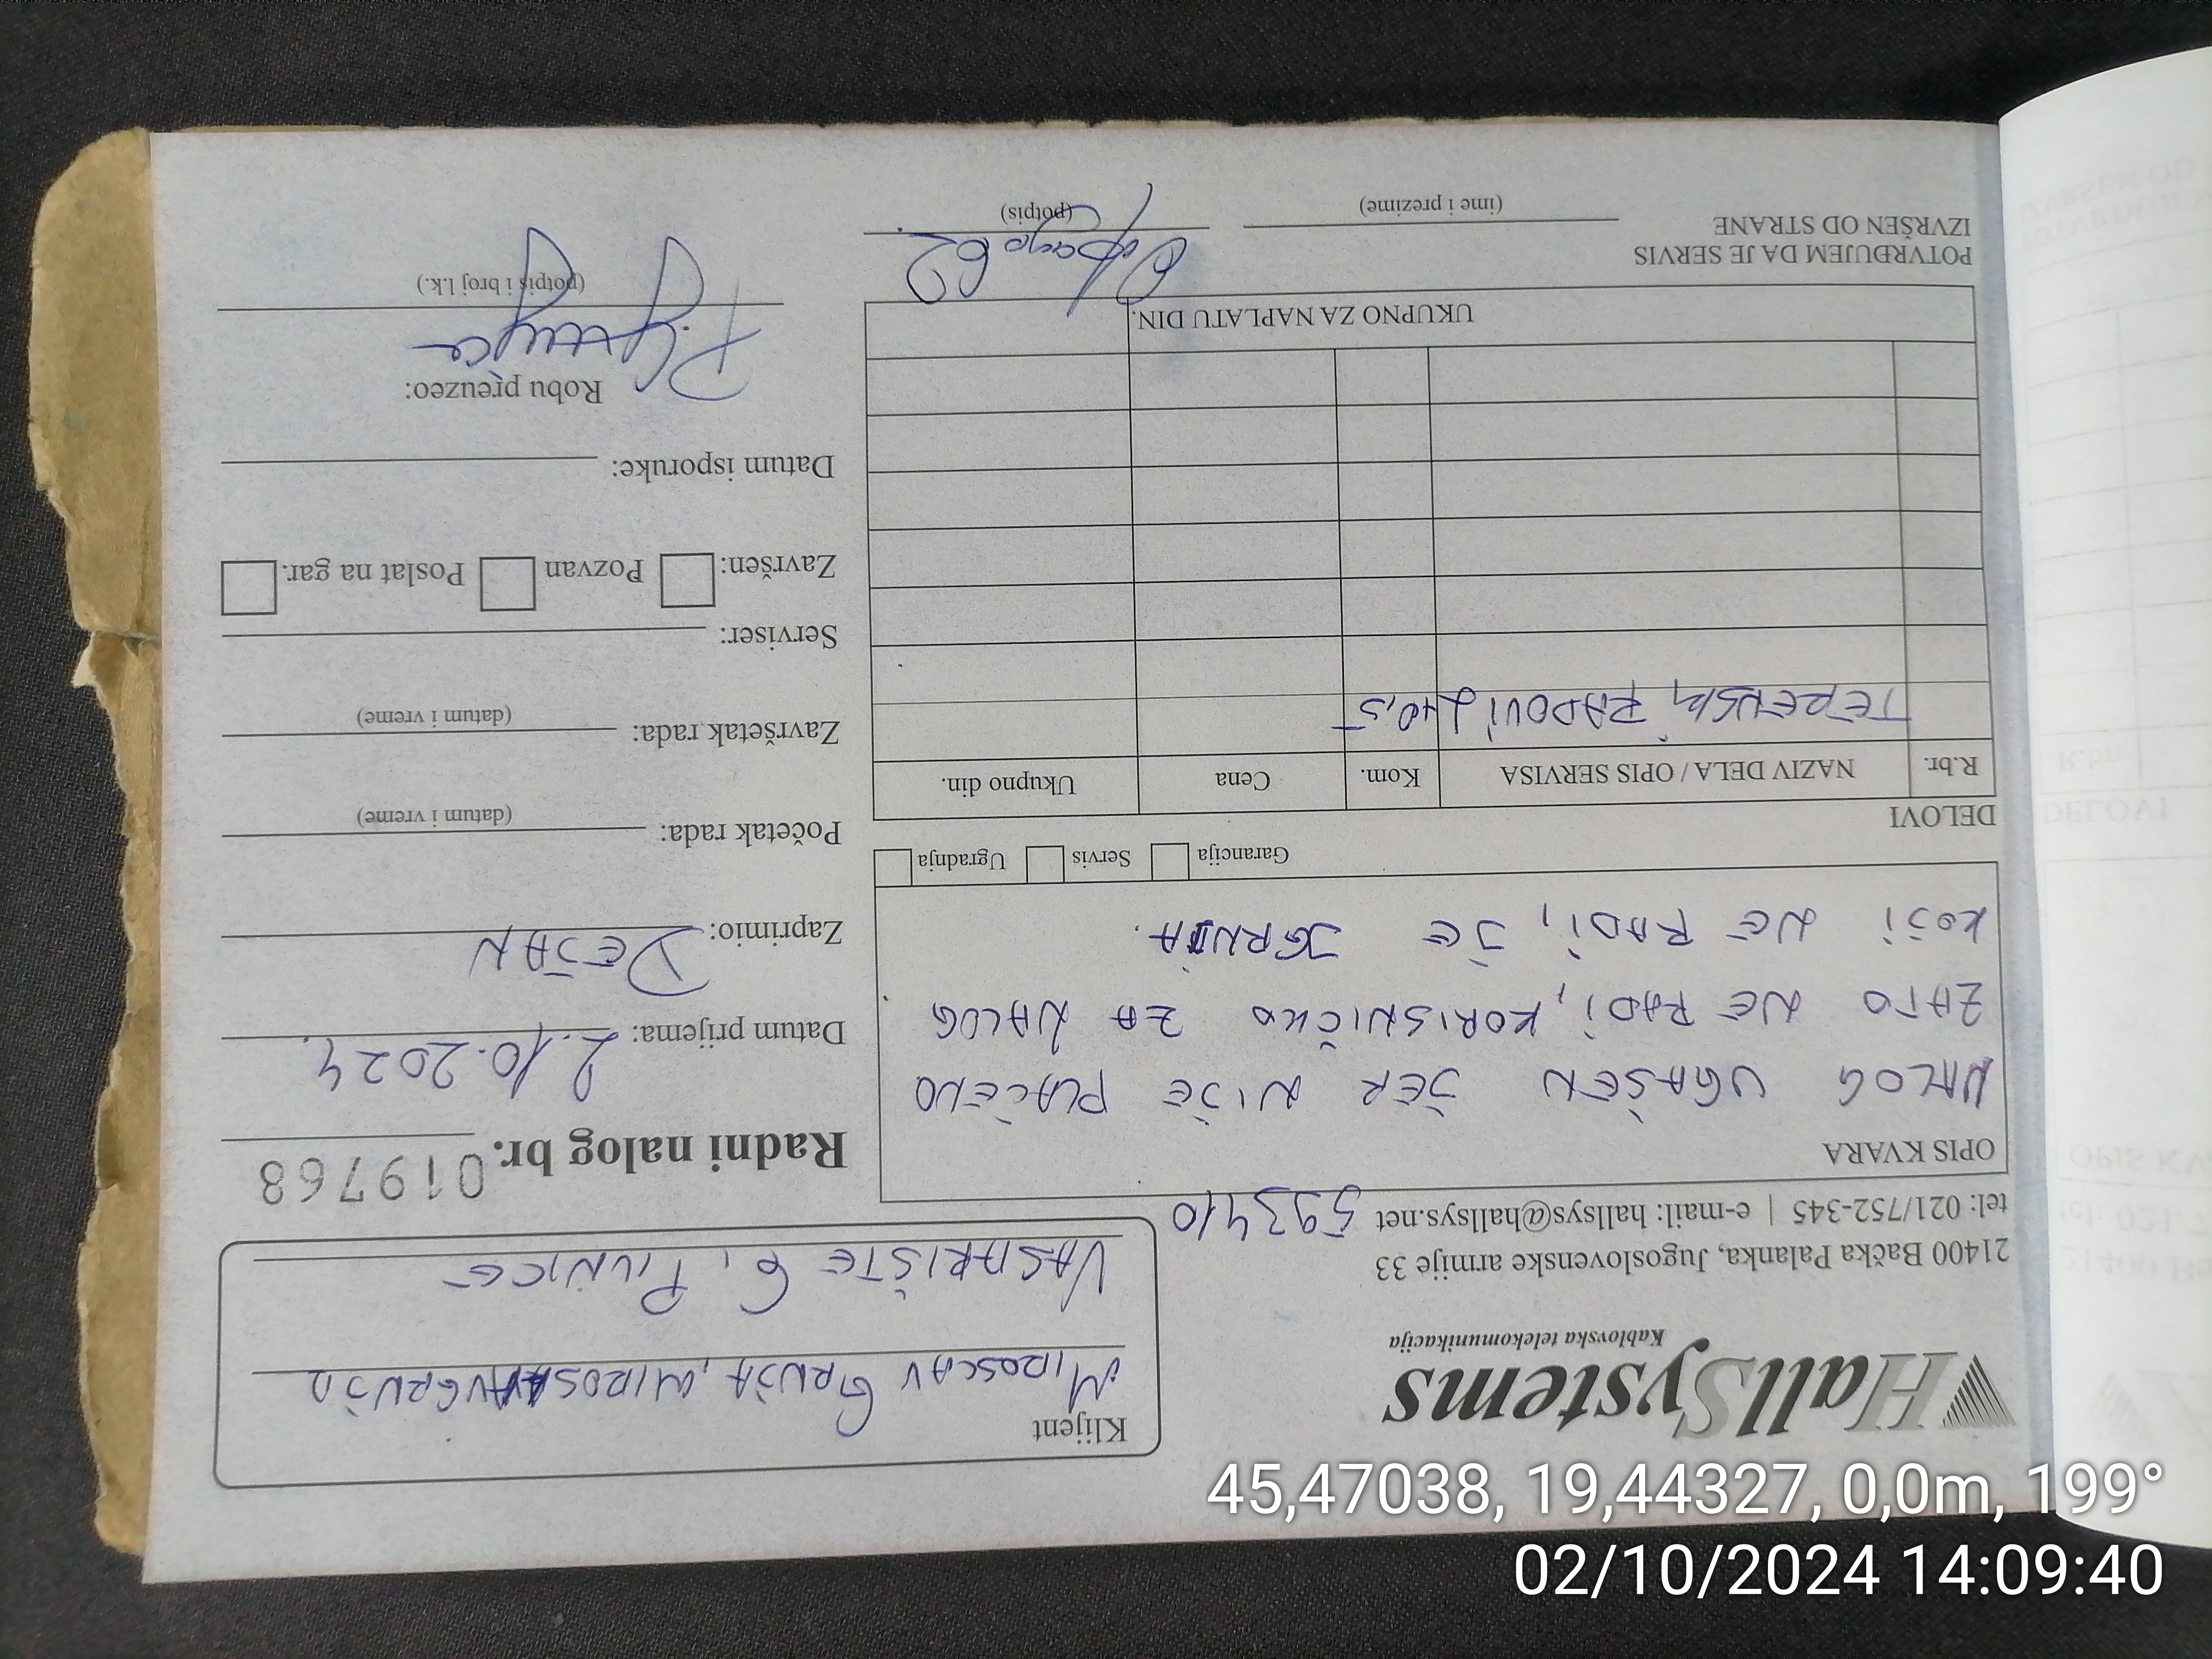 HallSystems
Kablovska telekomunikacija
21400 Bačka Palanka, Jugoslovenske armije 33
tel: 021/752-345 | e-mail: hallsys@hallsys.net 593410
Klijent
MIROSLAV GRUJA,
VAŠARIŠTE 6, PIVNICE
Radni nalog br. 019768
OPIS KVARA
NALOG UGAŠEN JER NIJE PLAĆENO
ZATO NE RADI, KORISNIČKO ZA NALOG
KOJI NE RADI, JE
Garancija Servis Ugradnja
Datum prijema: 2.10.2024.
Zaprimio: DEJAN
Početak rada:
(datum i vreme)
Završetak rada:
(datum i vreme)
Serviser:
Završen: Pozvan Poslat na gar.
Datum isporuke:
Robu preuzeo:
(potpis i broj l.k.)
DELOVI
R.br. NAZIV DELA / OPIS SERVISA Kom. Cena Ukupno din.
TERENSKI RADOVI
UKUPNO ZA NAPLATU DIN.
POTVRĐUJEM DA JE SERVIS
IZVRŠEN OD STRANE
(ime i prezime) (potpis)
45,47038, 19,44327, 0,0m, 199°
02/10/2024 14:09:40